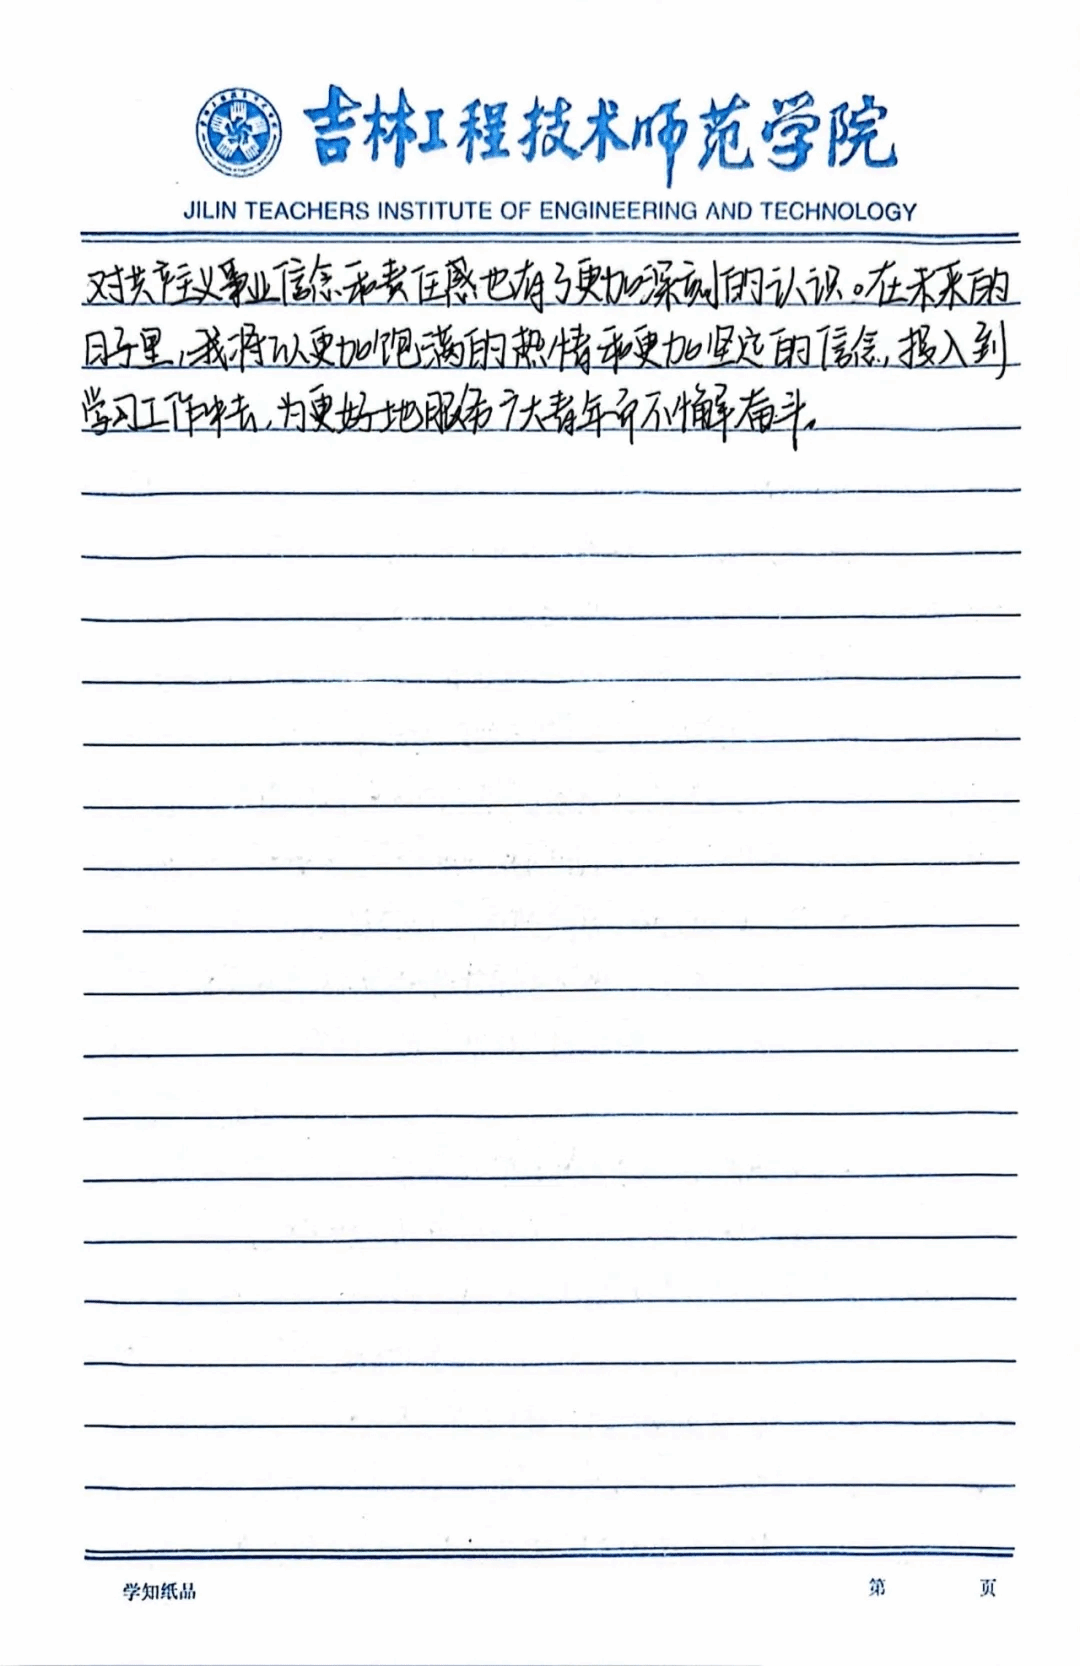 吉林工程技术师范学院
JILIN TEACHERS INSTITUTE OF ENGINEERING AND TECHNOLOGY
对共产主义事业信念和责任感也有了更加深刻的认识。在未来的
日子里,我将以更加饱满的热情和更加坚定的信念,投入到
学习工作中去,为更好地服务广大青年而不懈奋斗。
学知纸品 第 页